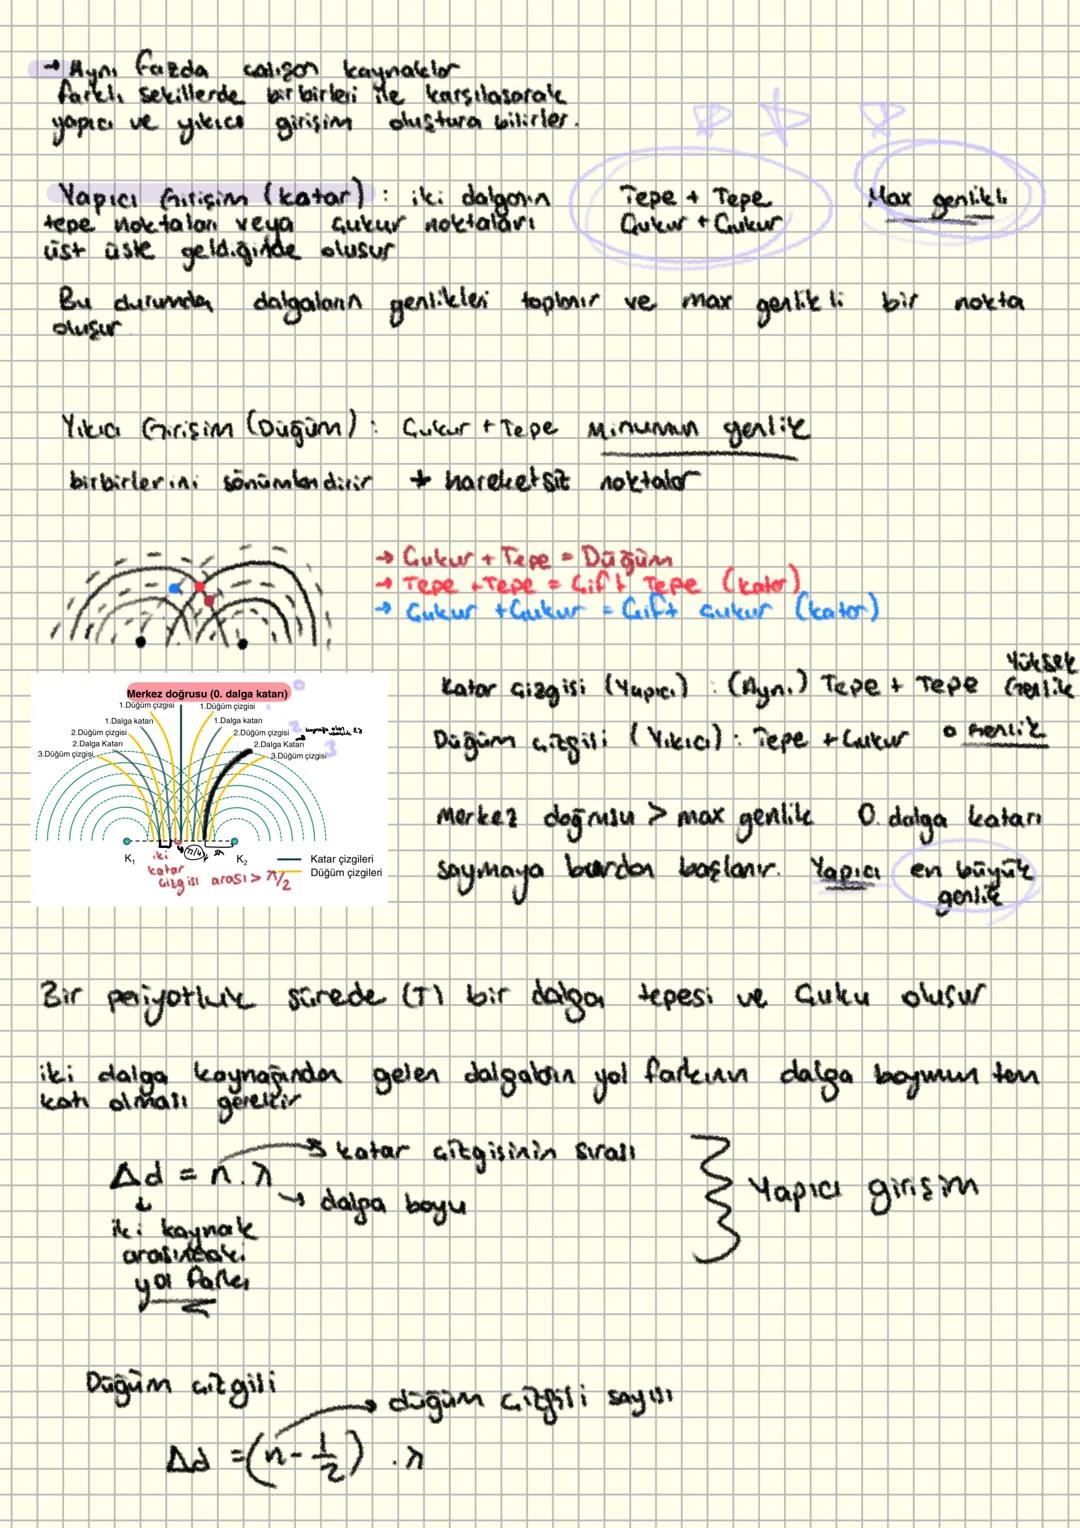 → Aynı fazda çalışan kaynaklar
farklı şekillerde birbirleri ile karşılaşarak
yapıcı ve yıkıcı girişim oluştura bilirler.
Yapıcı Girişim (katar) : iki dalganın
tepe noktaları veya çukur noktaları
üst üste geldiğinde oluşur
Tepe + Tepe
Çukur + Çukur
Max genlikli
Bu durumda dalgaların genlikleri toplanır ve max genlikli bir nokta
oluşur
Yıkıcı Girişim (Düğüm) : Çukur + Tepe Minumun genlik
birbirlerini sönümlendirir * hareketsiz noktalar
→ Çukur + Tepe = Düğüm
→ Tepe + Tepe = Çift Tepe (katar)
→ Çukur + Çukur = Çift çukur (katar)
Merkez doğrusu (0. dalga katarı) 0
1.Düğüm çizgisi 1.Düğüm çizgisi
1.Dalga katarı 1.Dalga katarı
2.Düğüm çizgisi 2.Düğüm çizgisi
2.Dalga Katarı 2.Dalga Katarı
3.Düğüm çizgisi 3.Düğüm çizgisi
2
3
K₁ K₂
λ/4
iki
katar
çizgisi arası > λ/2
Katar çizgileri
Düğüm çizgileri
Katar Çizgisi (Yapıcı) : (Aynı) Tepe + Tepe Yüksek Genlik
Düğüm çizgisi (Yıkıcı) : Tepe + Çukur 0 Genlik
Merkez doğrusu > max genlik 0. dalga katarı
saymaya burdan başlanır. Yapıcı en büyük
genlik
Bir periyotluk sürede (T) bir dalga tepesi ve Çuku oluşur
iki dalga kaynağından gelen dalgaların yol farkının dalga boyunun tam
katı olması gerekir
Δd = n.λ
→ katar çizgisinin sırası
→ dalga boyu
iki kaynak
arasındaki
yol farkı
} Yapıcı girişim
Düğüm çizgisi
→ düğüm çizgisi sayısı
Δd = (n - 1/2) . λ